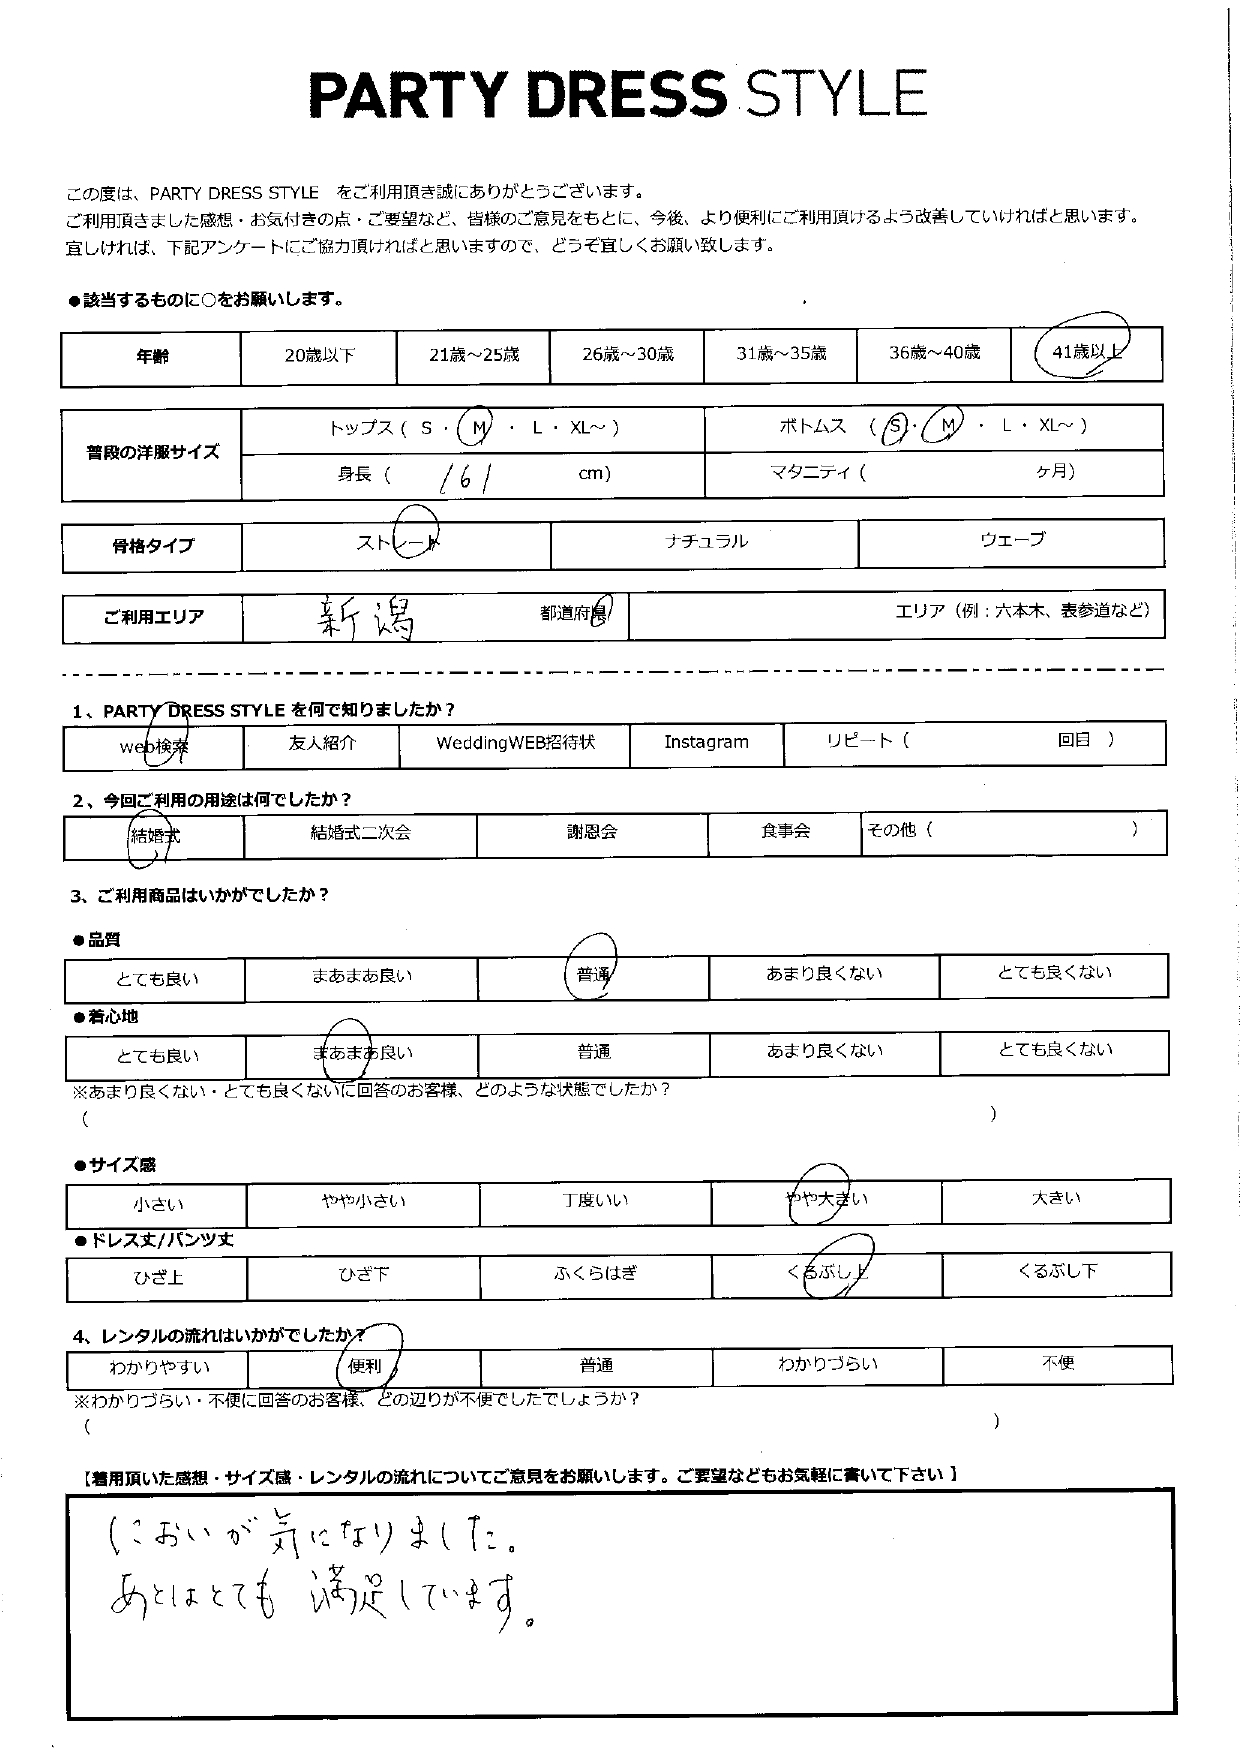 PARTY DRESS STYLE
この度は、PARTY DRESS STYLE をご利用頂き誠にありがとうございます。
ご利用頂きました感想・お気付きの点・ご要望など、皆様のご意見をもとに、今後、より便利にご利用頂けるよう改善していければと思います。
宜しければ、下記アンケートにご協力頂ければと思いますので、どうぞ宜しくお願い致します。
●該当するものに○をお願いします。
年齢 20歳以下 21歳～25歳 26歳～30歳 31歳～35歳 36歳～40歳 41歳以上
普段の洋服サイズ トップス ( S ・ M ・ L ・ XL～ ) ボトムス ( S ・ M ・ L ・ XL～ )
身長 ( 161 cm) マタニティ ( ヶ月)
骨格タイプ ストレート ナチュラル ウェーブ
ご利用エリア 新潟 都道府県 エリア（例：六本木、表参道など）
1、PARTY DRESS STYLE を何で知りましたか？
web検索 友人紹介 WeddingWEB招待状 Instagram リピート ( 回目 )
2、今回ご利用の用途は何でしたか？
結婚式 結婚式二次会 謝恩会 食事会 その他 ( )
3、ご利用商品はいかがでしたか？
●品質
とても良い まあまあ良い 普通 あまり良くない とても良くない
●着心地
とても良い まあまあ良い 普通 あまり良くない とても良くない
※あまり良くない・とても良くないに回答のお客様、どのような状態でしたか？
( )
●サイズ感
小さい やや小さい 丁度いい やや大きい 大きい
●ドレス丈/パンツ丈
ひざ上 ひざ下 ふくらはぎ くるぶし上 くるぶし下
4、レンタルの流れはいかがでしたか？
わかりやすい 便利 普通 わかりづらい 不便
※わかりづらい・不便に回答のお客様、どの辺りが不便でしたでしょうか？
( )
【着用頂いた感想・サイズ感・レンタルの流れについてご意見をお願いします。ご要望などもお気軽に書いて下さい】
においが気になりました。
あとはとても満足しています。